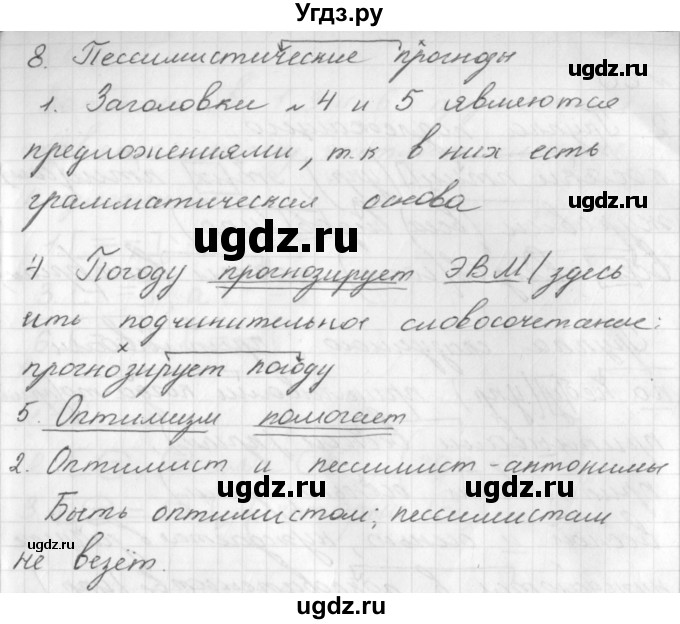 Угдз.ру
8. Пессимистические прогнозы
1. Заголовки № 4 и 5 являются
предложениями, т.к в них есть
грамматическая основа
4 Погоду прогнозирует ЭВМ (здесь
ить подчинительное словосочетание:
прогнозирует погоду
5. Оптимизм помогает
2. Оптимист и пессимист - антонимы
Быть оптимистом; пессимистам
не везёт.
ugdz.ru
ugdz.ru
ugdz.ru
ugdz.ru
ugdz.ru
ugdz.ru
ugdz.ru
ugdz.ru
ugdz.ru